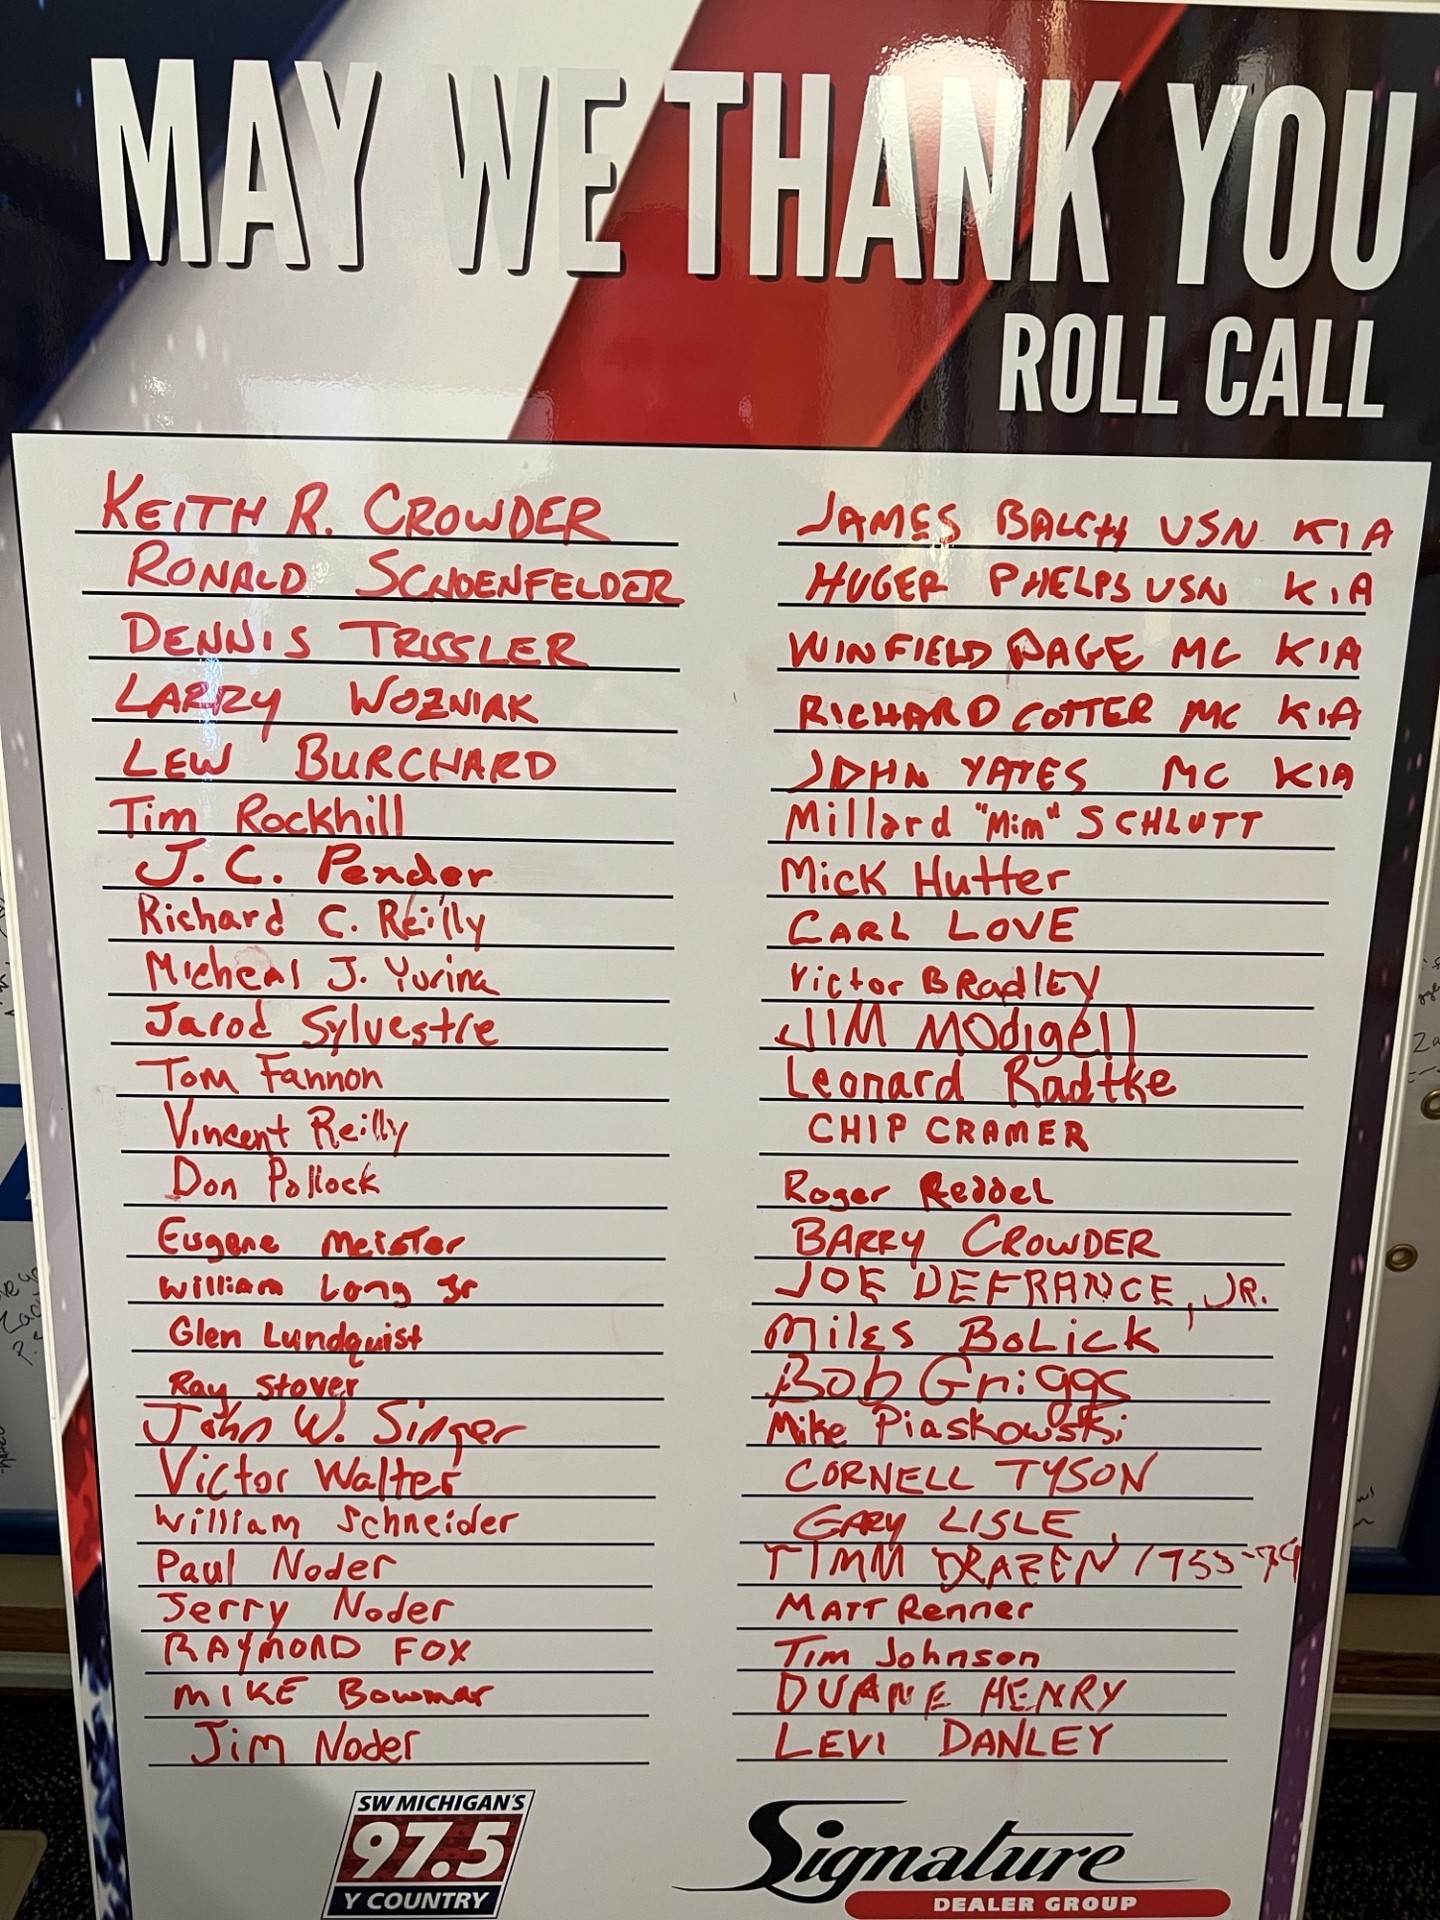 MAY WE THANK YOU
ROLL CALL
KEITH R. CROWDER
RONALD SCHOENFELDER
DENNIS TRISSLER
LARRY WOZNIAK
LEW BURCHARD
Tim Rockhill
J. C. Pender
Richard C. Reilly
Micheal J. Yurina
Jarod Sylvestre
Tom Fannon
Vincent Reilly
Don Pollock
Eugene Meister
William Long Jr
Glen Lundquist
Ray Stover
John W. Singer
Victor Walter
William Schneider
Paul Noder
Jerry Noder
RAYMOND FOX
MIKE Bowmar
Jim Noder
JAMES BALCH USN KIA
HUGER PHELPS USN KIA
WINFIELD PAGE MC KIA
RICHARD COTTER MC KIA
JOHN YATES MC KIA
Millard "Mim" SCHLUTT
Mick Hutter
CARL LOVE
Victor BRadlEy
JIM MOdigell
Leonard Radtke
CHIP CRAMER
Roger Reddel
BARRY CROWDER
JOE DEFRANCE, JR.
Miles BoLick
Bob Griggs
Mike Piaskowski
CORNELL TYSON
GARY LISLE
TIMM DRAZEN
MATT Renner
Tim Johnson
DUANE HENRY
LEVI DANLEY
SW MICHIGAN'S
97.5
Y COUNTRY
Signature
DEALER GROUP